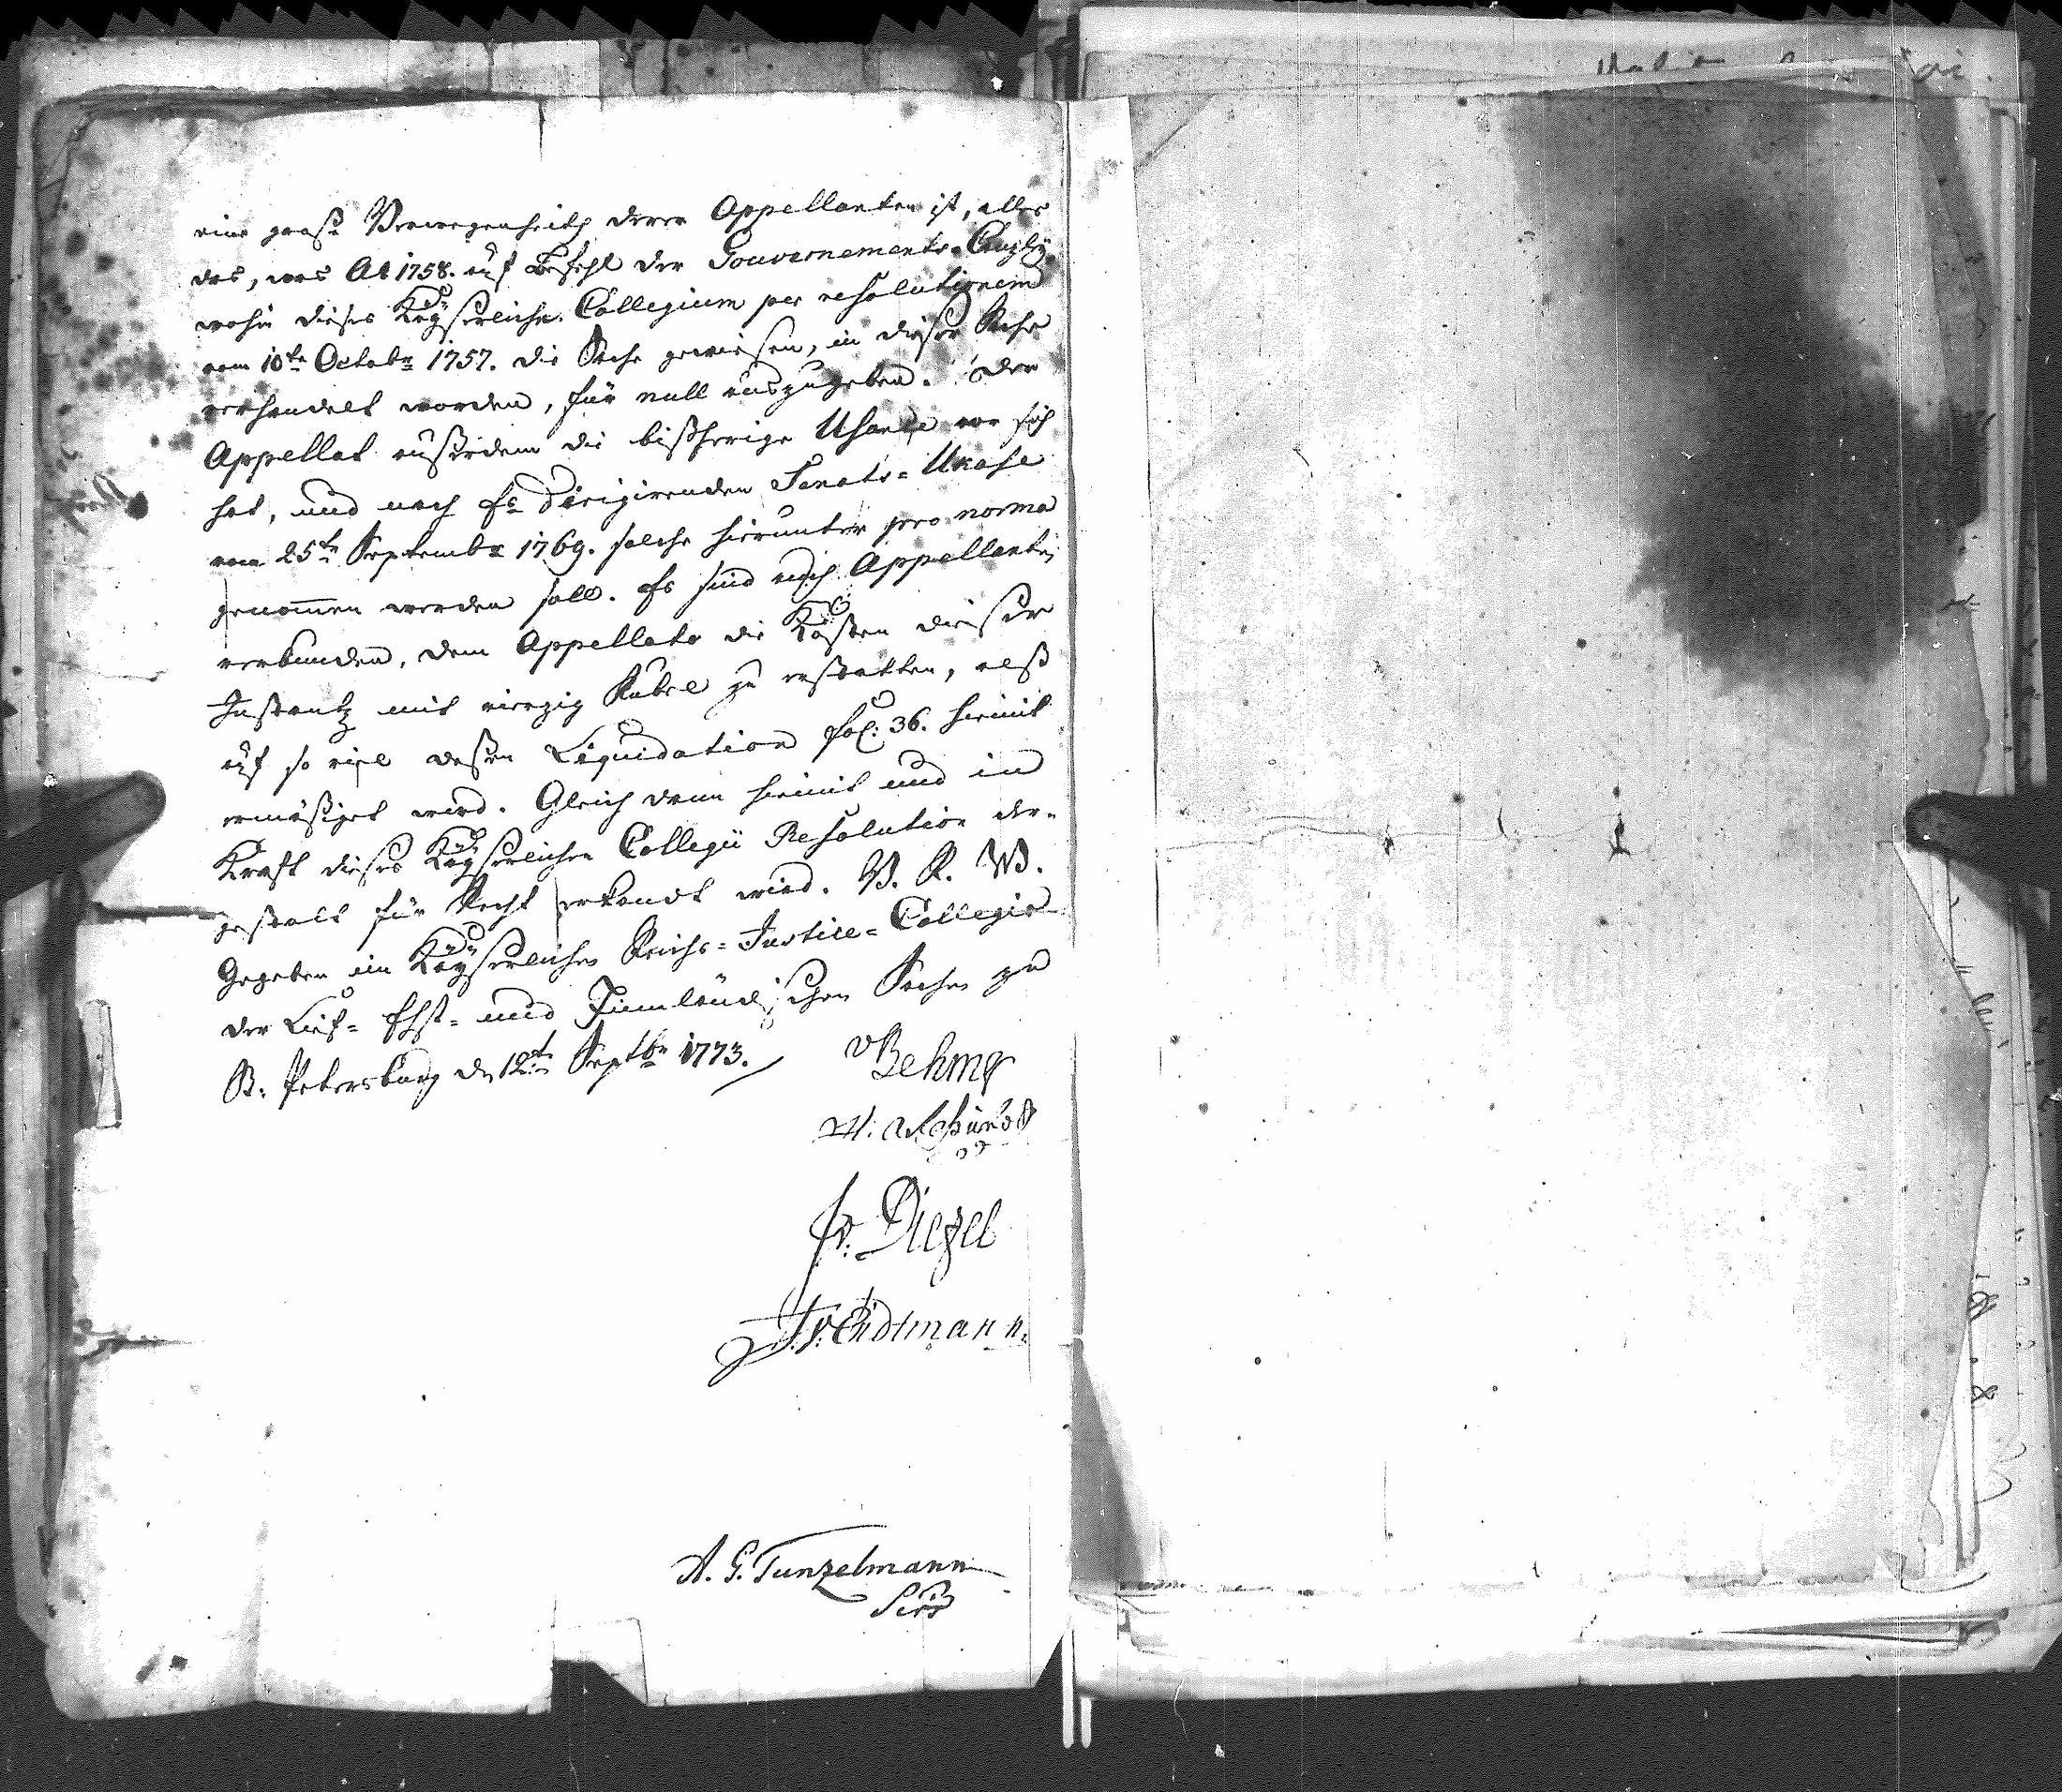 eine große Verwegenheith derer Appellanten ist, alles
das, was Aõ 1758. auf Befehl der Gouvernements-Canzley
wohin dieses Kayserliche Collegium per resolutionem
vom 10ten Octobr 1757. die Sache gewiesen, in dieser Sache
verhandelt worden, für null auszugeben. der
Appellat außerdem die bißherige Usance vor sich
hat, und nach Es Dirigirenden Senats-Ukase
vom 25ten Septembr 1769. solche hierunter pro norma
genommen werden soll. Es sind auch Appellanten
verbunden, dem Appellato die Kosten dieser
Instantz mit vierzig Rubel zu erstatten, alß
auf so viel deßen Liquidation fol: 36. hiemit
ermäßiget wird. Gleich denn hiemit und in
Kraft dieses Kayserlichen Collegii Resolution der-
gestalt für Recht erkandt wird. V. R. W.
Gegeben im Kayserlichen Reichs-Justice-Collegio
der Lief- Ehst- und Finnländischen Sachen zu
St. Petersburg dn 12ten Septbr 1773.
vBehmer
v. Diezel
A. G. Tunzelmann
Secr